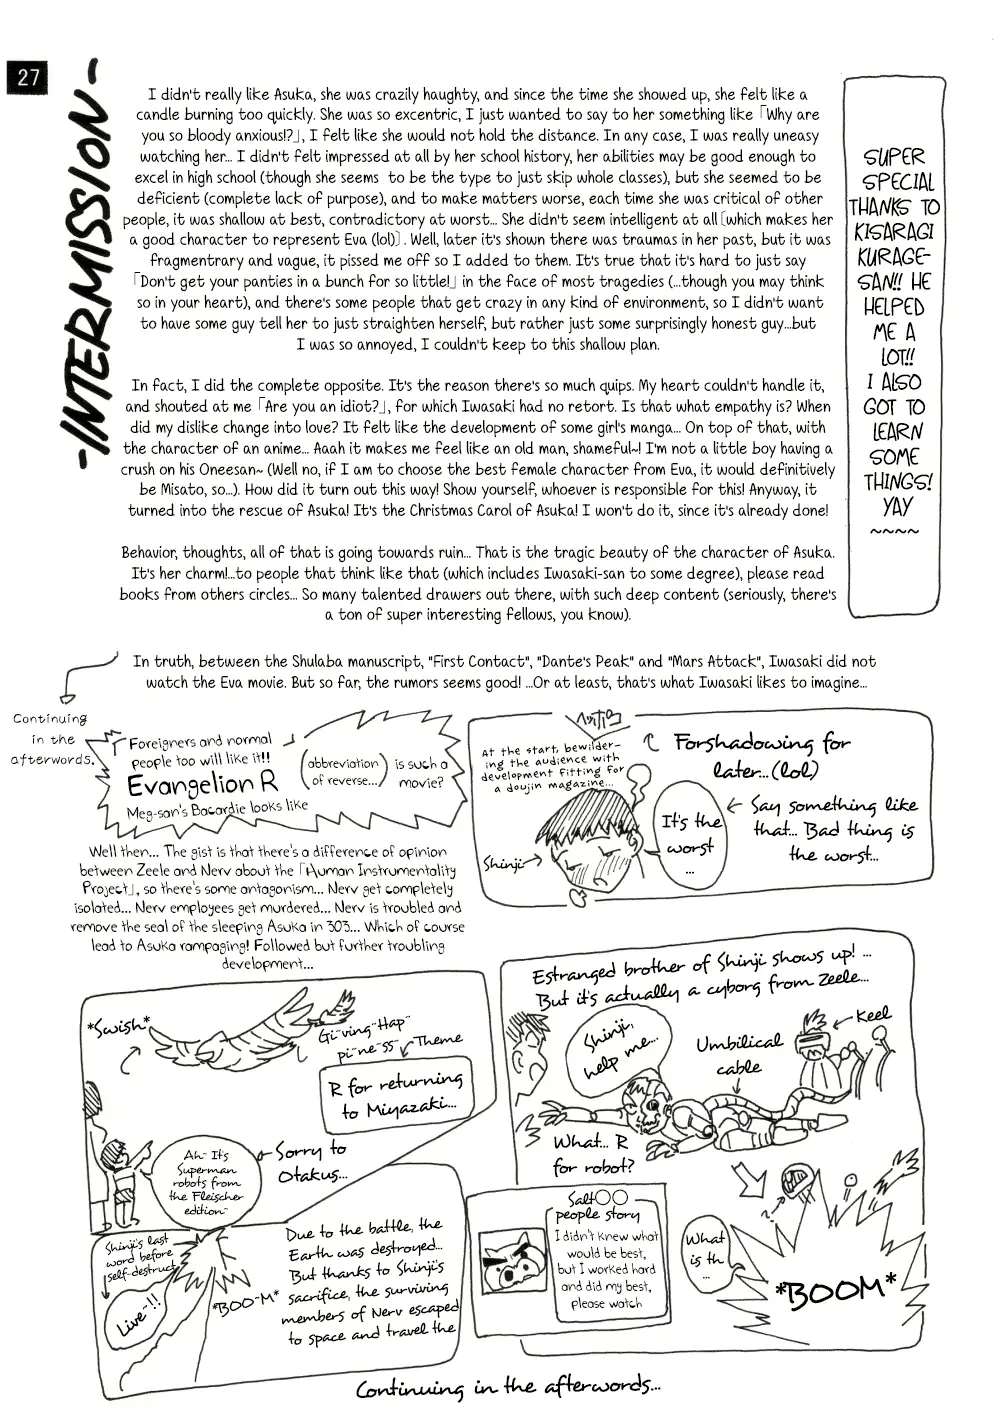 27
-INTERMISSION-
I didn't really like Asuka, she was crazily haughty, and since the time she showed up, she felt like a
candle burning too quickly. She was so excentric, I just wanted to say to her something like 「Why are
you so bloody anxious!?」, I felt like she would not hold the distance. In any case, I was really uneasy
watching her... I didn't felt impressed at all by her school history, her abilities may be good enough to
excel in high school (though she seems to be the type to just skip whole classes), but she seemed to be
deficient (complete lack of purpose), and to make matters worse, each time she was critical of other
people, it was shallow at best, contradictory at worst... She didn't seem intelligent at all [which makes her
a good character to represent Eva (lol)]. Well, later it's shown there was traumas in her past, but it was
fragmentrary and vague, it pissed me off so I added to them. It's true that it's hard to just say
「Don't get your panties in a bunch for so little!」 in the face of most tragedies (...though you may think
so in your heart), and there's some people that get crazy in any kind of environment, so I didn't want
to have some guy tell her to just straighten herself, but rather just some surprisingly honest guy...but
I was so annoyed, I couldn't keep to this shallow plan.
In fact, I did the complete opposite. It's the reason there's so much quips. My heart couldn't handle it,
and shouted at me 「Are you an idiot?」, for which Iwasaki had no retort. Is that what empathy is? When
did my dislike change into love? It felt like the development of some girl's manga... On top of that, with
the character of an anime... Aaah it makes me feel like an old man, shameful~! I'm not a little boy having a
crush on his Oneesan~ (Well no, if I am to choose the best female character from Eva, it would definitively
be Misato, so...). How did it turn out this way! Show yourself, whoever is responsible for this! Anyway, it
turned into the rescue of Asuka! It's the Christmas Carol of Asuka! I won't do it, since it's already done!
Behavior, thoughts, all of that is going towards ruin... That is the tragic beauty of the character of Asuka.
It's her charm!...to people that think like that (which includes Iwasaki-san to some degree), please read
books from others circles... So many talented drawers out there, with such deep content (seriously, there's
a ton of super interesting fellows, you know).
SUPER
SPECIAL
THANKS TO
KISARAGI
KURAGE-
SAN!! HE
HELPED
ME A
LOT!!
I ALSO
GOT TO
LEARN
SOME
THINGS!
YAY
~~~~
In truth, between the Shulaba manuscript, "First Contact", "Dante's Peak" and "Mars Attack", Iwasaki did not
watch the Eva movie. But so far, the rumors seems good! ...Or at least, that's what Iwasaki likes to imagine...
Continuing
in the
afterwords.
Foreigners and normal
people too will like it!!
Evangelion R
Meg-san's Bacardie looks like
(abbreviation
of reverse...)
is such a
movie?
At the start, bewilder-
ing the audience with
development fitting for
a doujin magazine...
Forshadowing for
later...(lol)
Shinji
It's the
worst
...
Say something like
that... Bad thing is
the worst...
Well then... The gist is that there's a difference of opinion
between Zeele and Nerv about the 「Human Instrumentality
Project」, so there's some antagonism... Nerv get completely
isolated... Nerv employees get murdered... Nerv is troubled and
remove the seal of the sleeping Asuka in 303... Which of course
lead to Asuka rampaging! Followed but further troubling
development...
*Swish*
Gi~ving~Hap~
pi~ne~ss~
Theme
R for returning
to Miyazaki...
Ah~ It's
Superman
robots from
the Fleischer
edition~
Sorry to
Otakus...
Estranged brother of Shinji shows up! ...
But it's actually a cyborg from Zeele...
Shinji,
help me...
Umbilical
cable
Keel
What... R
for robot?
Salt○○
people story
I didn't knew what
would be best,
but I worked hard
and did my best,
please watch
What
is th
...
*BOOM*
Shinji's last
word before
self-destruct
Live~!!
*BOO~M*
Due to the battle, the
Earth was destroyed...
But thanks to Shinji's
sacrifice, the surviving
members of Nerv escaped
to space and travel the
Continuing in the afterwords...